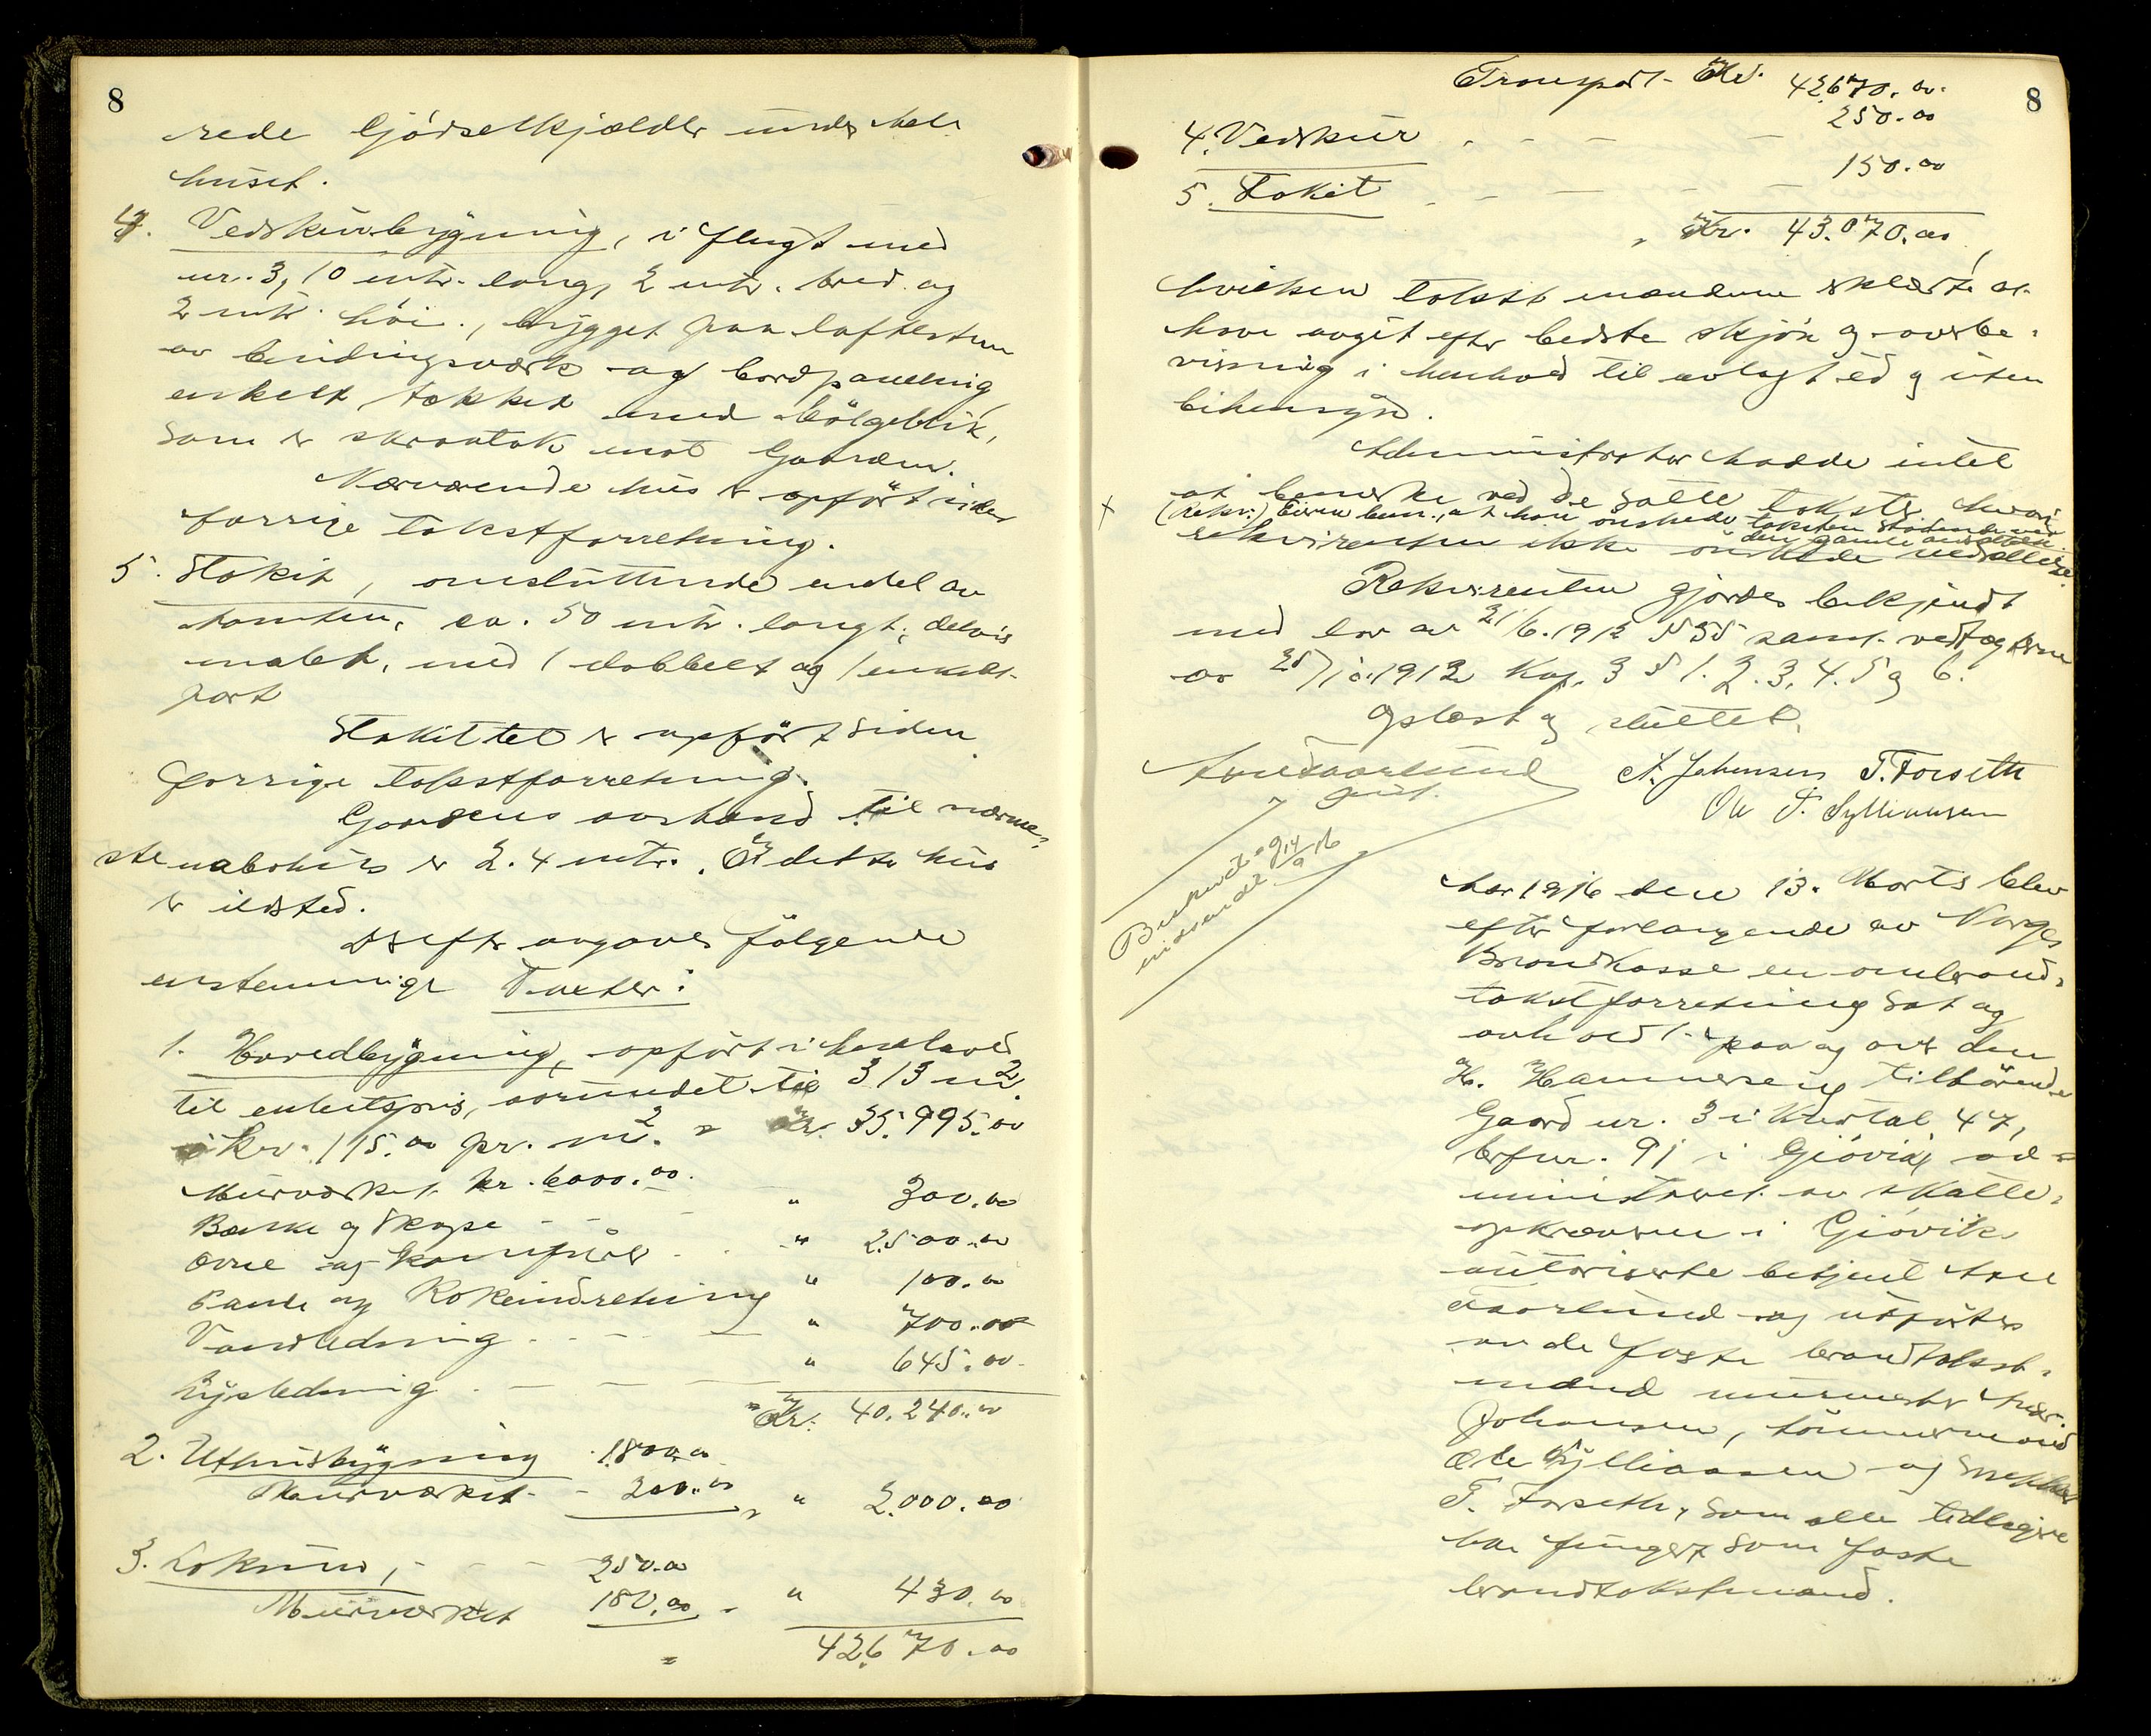 8
rede Gjödselkjælder under hele
huset.
4. Vedskurbygning, i flugt med
nr. 3, 10 mtr. lang, 2 mtr. bred og
2 mtr. höi, bygget paa loftestene
av bindingsverk og bordpanelning
enkelt, tækket med bölgeblik,
som er skraatak mot Gaarden.
Nærværende hus er opfört siden
forrige takstforretning.
5. Stakit, omsluttende endel av
tomten, ca. 50 mtr. langt, delvis
malet, med 1 dobbelt og 1 enkelt
port
Stakittet er opfört siden
forrige takstforretning.
Gaardens avstand til nærme-
ste nabohus er 2.4 mtr. I dette hus
er ildsted.
Derefter avgaves fölgende
enstemmige Taxter:
1. Hovedbygning, opfört i henhold
til enhetspris, avrundet til 313 m2.
à kr. 115.00 pr. m2. " Kr. 35.995.00
Murverket kr. 6000.00.
Bænke og Skape - - - " 300.00
Ovne og Komfyrer - - " 2500.00
Pande og Kokeindretning " 100.00
Vandledning - - - " 700.00
Lysledning - - - " 645.00
" Kr. 40.240.00
2. Uthusbygning - 1800.00
Murverket - 200.00 " " 2.000.00
3. Lokrum, - - - 250.00
Murverket 180.00 - " 430.00
" 42670.00
8
Transport Kr. 42670.00
4. Vedskur - - - - 250.00
5. Stakit - - - - 150.00
" Kr. 43.070.00,
hvilken takst mændene erklærte at
have avgit efter bedste skjön og overbe-
visning i henhold til avlagt ed og uten
bihensyn.
Administrator hadde intet
at bemerke ved de satte takster, hvor
x (Rekv.) Eieren bem., at han önskede taksten staaende ved
den gamle
rekvirenten ikke önskede
Rekvirenten gjordes bekjendt
med lov av 21/6.1912 § 35 samt vedtægterne
av 25/10.1912 Kap. 3 § 1. 2. 3. 4. 5 og 6.
Oplæst og sluttet.
A. Johansen T. Forseth
Ole P. Sylliaasen
Beskrevet og
indsendt 14/9 16
Aar 1916 den 13. Marts blev
efter forlangende av Norges
Brandkasse en ombrand-
takstforretning sat og
avholdt paa og over den
Hr. Hammerseng tilhörende
Gaard nr. 3 i Kvartal 47,
brfnr. 91 i Gjövik, ad-
ministreret av skatte-
opkræveren i Gjöviks
autoriserte betjent Arne
Taarlund og utförtes
av de faste brandtakst-
mænd murmester Andr.
Johansen, tömmermand
Ole Sylliaasen og Snekker
T. Forseth, som alle tidligere
har fungert som faste
brandtakstmænd.